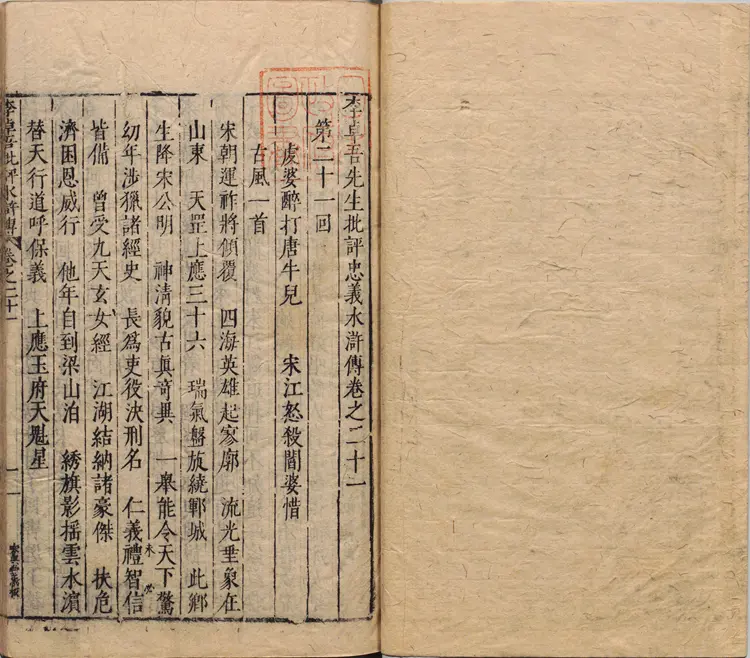 李卓吾先生批評忠義水滸傳卷之二十一
第二十一回
虔婆醉打唐牛兒　宋江怒殺閻婆惜
古風一首
宋朝運祚將傾覆　四海英雄起寥廓　流光垂象在
山東　天罡上應三十六　瑞氣盤旋繞鄆城　此鄉
生降宋公明　神清貌古眞奇異　一舉能令天下驚
幼年涉獵諸經史　長爲吏役決刑名　仁義禮智信
皆備　曾受九天玄女經　江湖結納諸豪傑　扶危
濟困恩威行　他年自到梁山泊　綉旗影搖雲水濱
替天行道呼保義　上應玉府天魁星
李卓吾批評水滸傳　卷之二十一　一